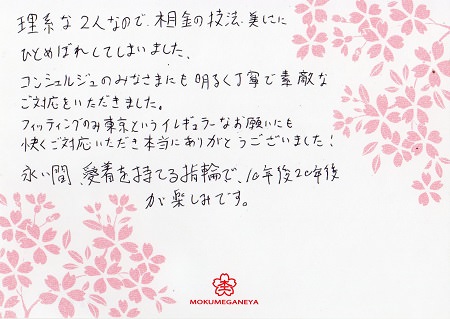 理系な2人なので、相金の技法、美しさに
ひとめぼれしてしまいました。
コンシェルジュのみなさまにも明るく丁寧で素敵な
ご対応をいただきました。
フィッティングのみ東京というイレギュラーなお願いにも
快くご対応いただき本当にありがとうございました!
永い間、愛着を持てる指輪で、10年後20年後
が楽しみです。
MOKUMEGANEYA